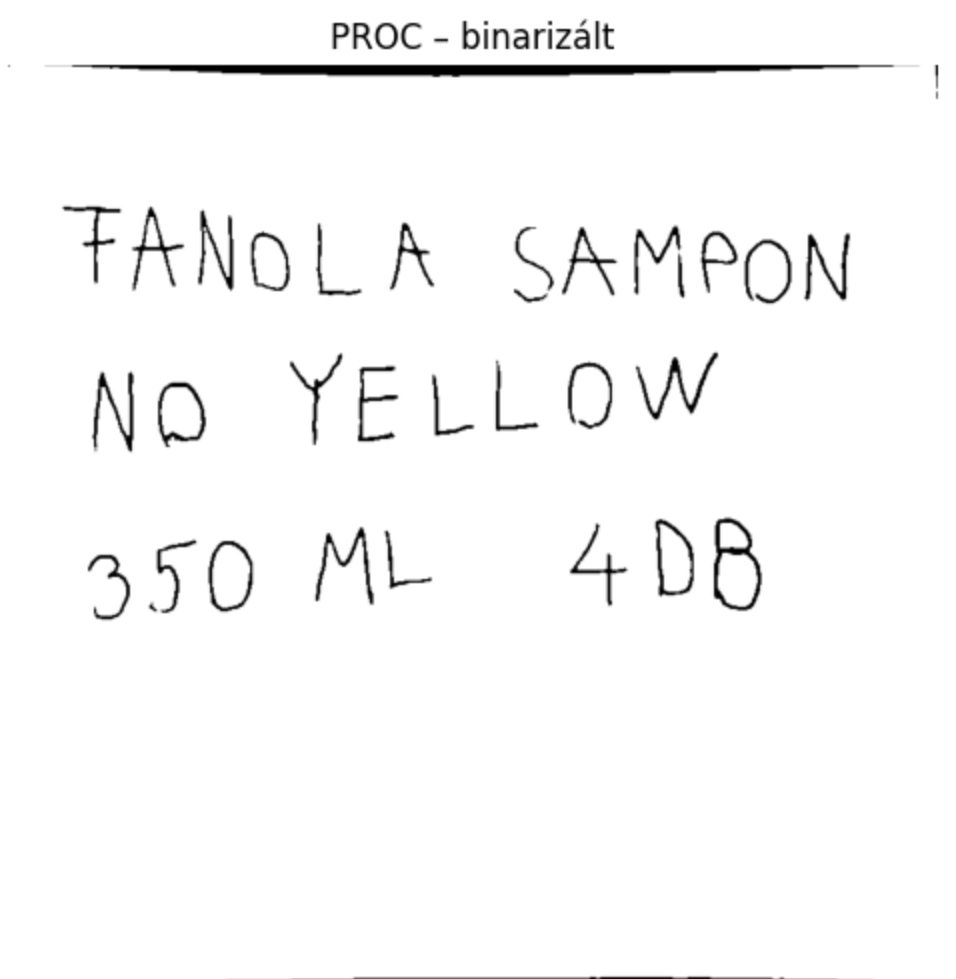 PROC – binarizált
FANOLA SAMPON
NO YELLOW
350 ML 4DB